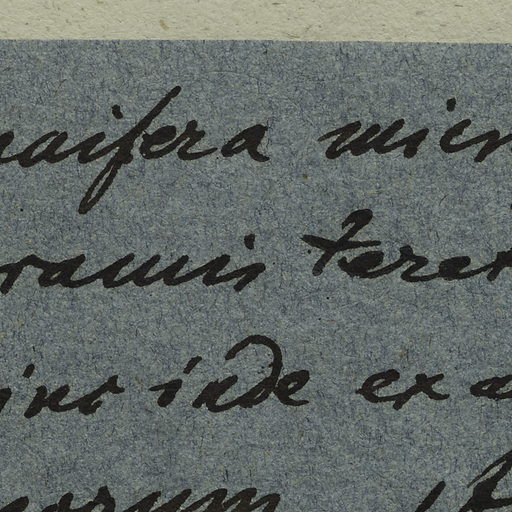 aifera micr
ramis teret
inc inde exa
orum